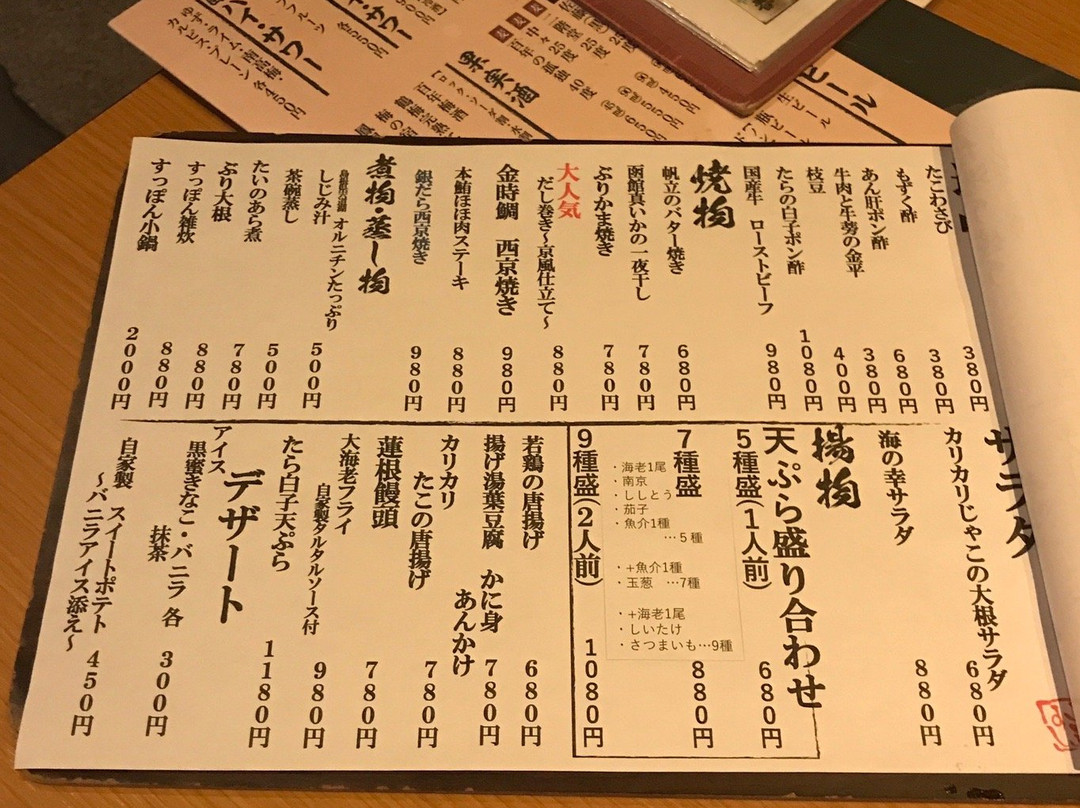 たこわさび 380円
もずく酢 380円
あん肝ポン酢 680円
牛肉と牛蒡の金平 380円
枝豆 400円
たらの白子ポン酢 1080円
国産牛 ローストビーフ 980円
焼物
帆立のバター焼き 680円
函館真いかの一夜干し 780円
ぶりかま焼き 780円
大人気
だし巻き〜京風仕立て〜 880円
金時鯛 西京焼き 980円
本鮪ほほ肉ステーキ 880円
銀だら西京焼き 980円
煮物・蒸し物
しじみ汁 オルニチンたっぷり 500円
茶碗蒸し 500円
たいのあら煮 780円
ぶり大根 880円
すっぽん雑炊 880円
すっぽん小鍋 2000円
サラダ
カリカリじゃこの大根サラダ 680円
海の幸サラダ 880円
揚物
天ぷら盛り合わせ
5種盛(1人前) 680円
7種盛 880円
・海老1尾
・南京
・ししとう
・茄子
・魚介1種
…5種
・+魚介1種
・玉葱 …7種
・+海老1尾
・しいたけ
・さつまいも…9種
9種盛(2人前) 1080円
若鶏の唐揚げ 680円
揚げ湯葉豆腐 かに身あんかけ 780円
カリカリたこの唐揚げ 780円
蓮根饅頭 780円
大海老フライ 自家製タルタルソース付 980円
たら白子天ぷら 1180円
デザート
アイス
黒蜜きなこ・バニラ 各 300円
抹茶
自家製 スイートポテト 450円
〜バニラアイス添え〜
果実酒
ビール